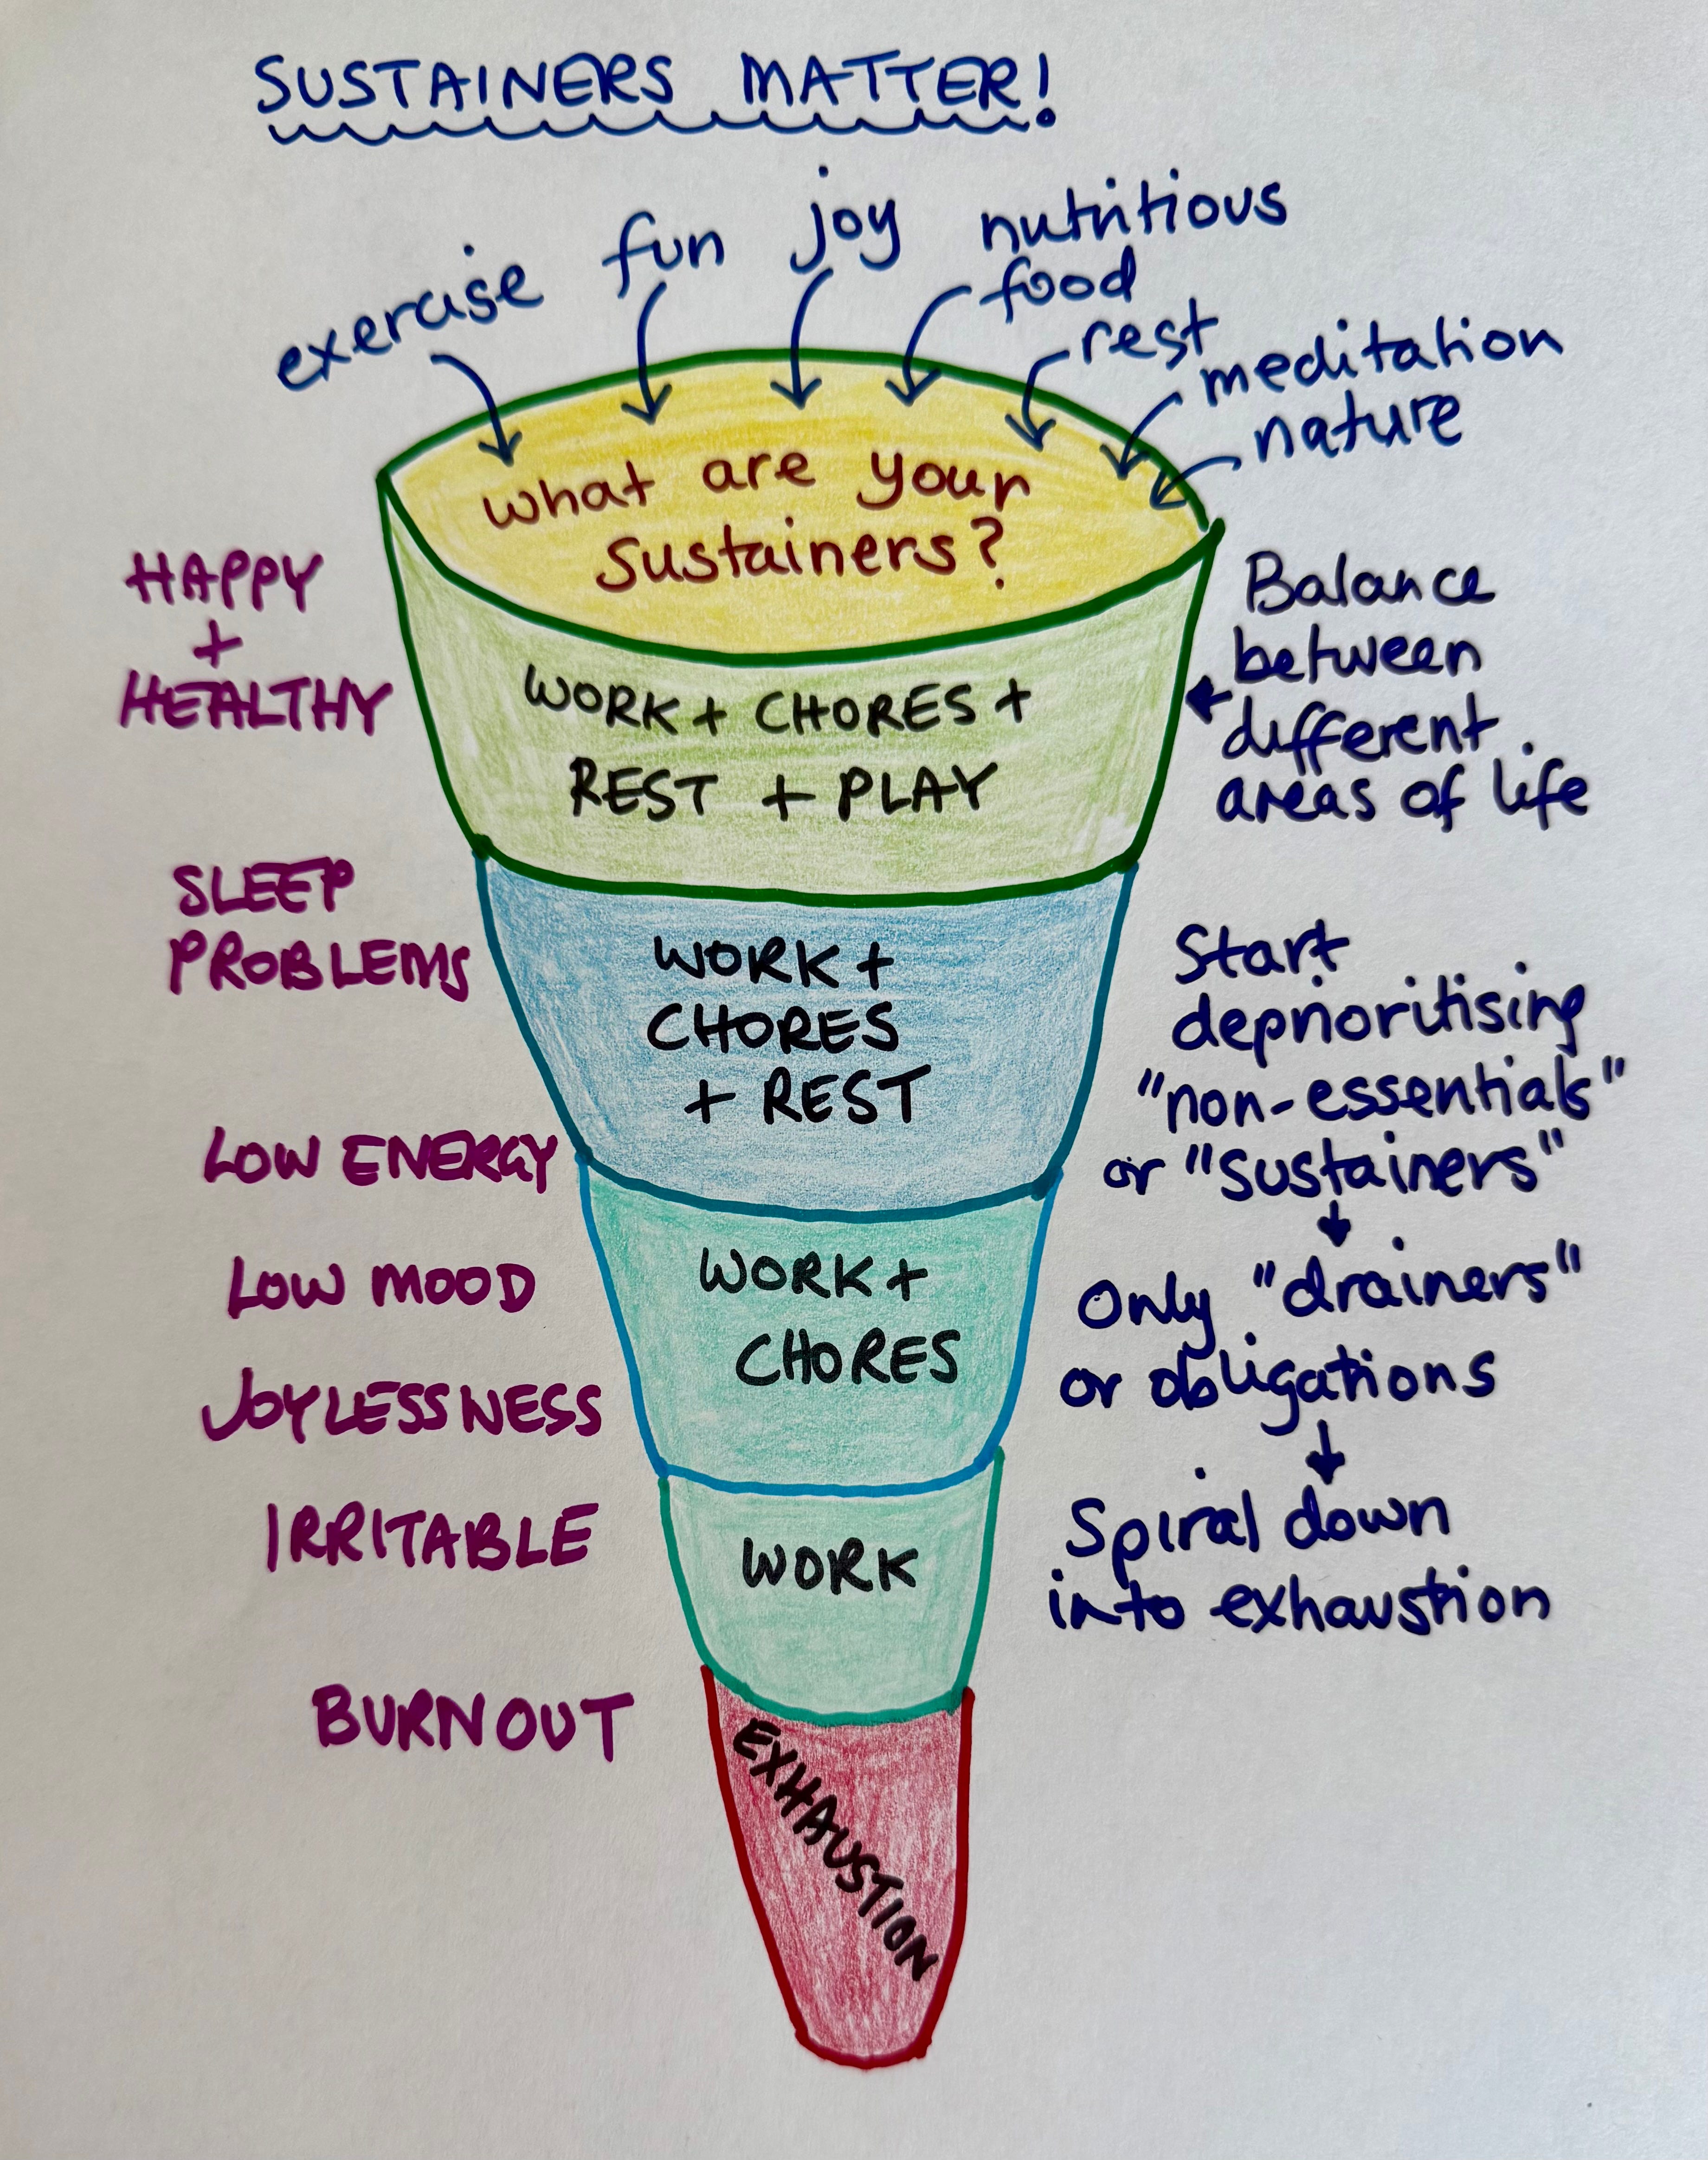 SUSTAINERS MATTER!
exercise
fun
joy
nutritious
food
rest
meditation
nature
What are your
sustainers?
HAPPY
+
HEALTHY
WORK + CHORES +
REST + PLAY
Balance
between
different
areas of life
SLEEP
PROBLEMS
WORK +
CHORES
+ REST
Start
deprioritising
"non-essentials"
or "sustainers"
LOW ENERGY
LOW MOOD
WORK +
CHORES
Only "drainers"
or obligations
JOYLESSNESS
IRRITABLE
WORK
Spiral down
into exhaustion
BURNOUT
EXHAUSTION